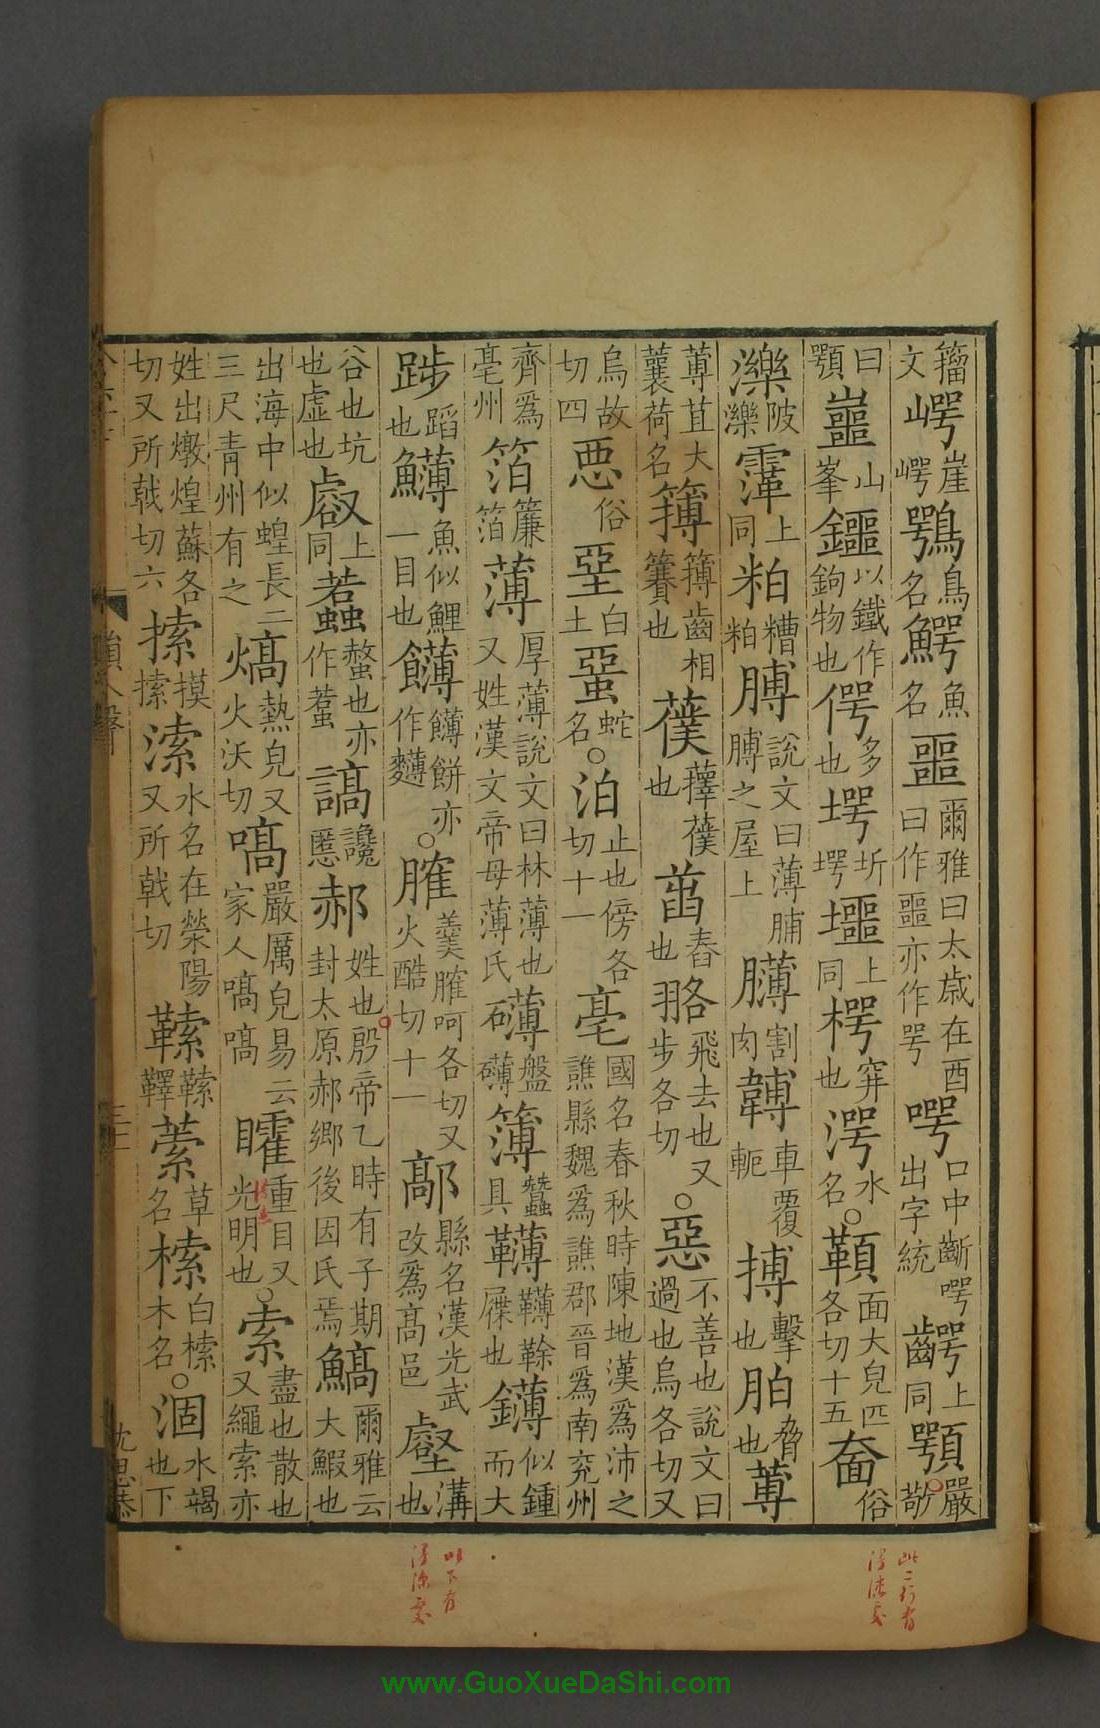 籀文㟧崖㟧鶚鳥名鰐魚名噩爾雅曰太歲在酉曰作噩亦作咢㗁口中齗㗁出字統齶上同顎嚴敬
曰顎㠋山峯鑩以鐵作鉤物也偔多也堮圻堮壥上同㮙穽也湂水名○䩹面大皃匹各切十五奤俗
濼陂濼䨰上同粕糟粕膊說文曰薄脯膊之屋上䪇割肉䪙車覆軛搏擊也胉脅也蓴
蓴苴大蘘荷名簙簙齒相簺也蒦蘀蒦也䓊舂也㓢飛去也又步各切○惡不善也說文曰過也烏各切又
烏故切四惡俗堊白土蝁蛇名○泊止也傍各切十一亳國名春秋時陳地漢爲沛之譙縣魏爲譙郡晉爲南兖州
齊爲亳州箔簾箔薄厚薄說文曰林薄也又姓漢文帝母薄氏礡礡盤簿蠶具䪙䪙䩣屧也鑮似鍾而大
踄蹈也䲔魚似鯉一目也餺餺餅亦作䴺○臛羹臛呵各切又火酷切十一鄗縣名漢光武改爲高邑壑溝也
谷也坑也虛也叡上同蠚螫也亦作䘃謞讒慝郝姓也殷帝乙時有子期封太原郝鄉後因氏焉鰝爾雅云大鰕也
出海中似蝗長二三尺青州有之熇熱皃又火沃切嗃嚴厲皃易云家人嗃嗃矐重目又光明也○索盡也散也又繩索亦
姓出燉煌蘇各切又所戟切六㩱摸㩱溹水名在滎陽又所戟切䩹䩹鞾蕠草名㮦白㮦木名○涸水竭也下
沈思恭
此二行有
以下有
www.GuoXueDaShi.com